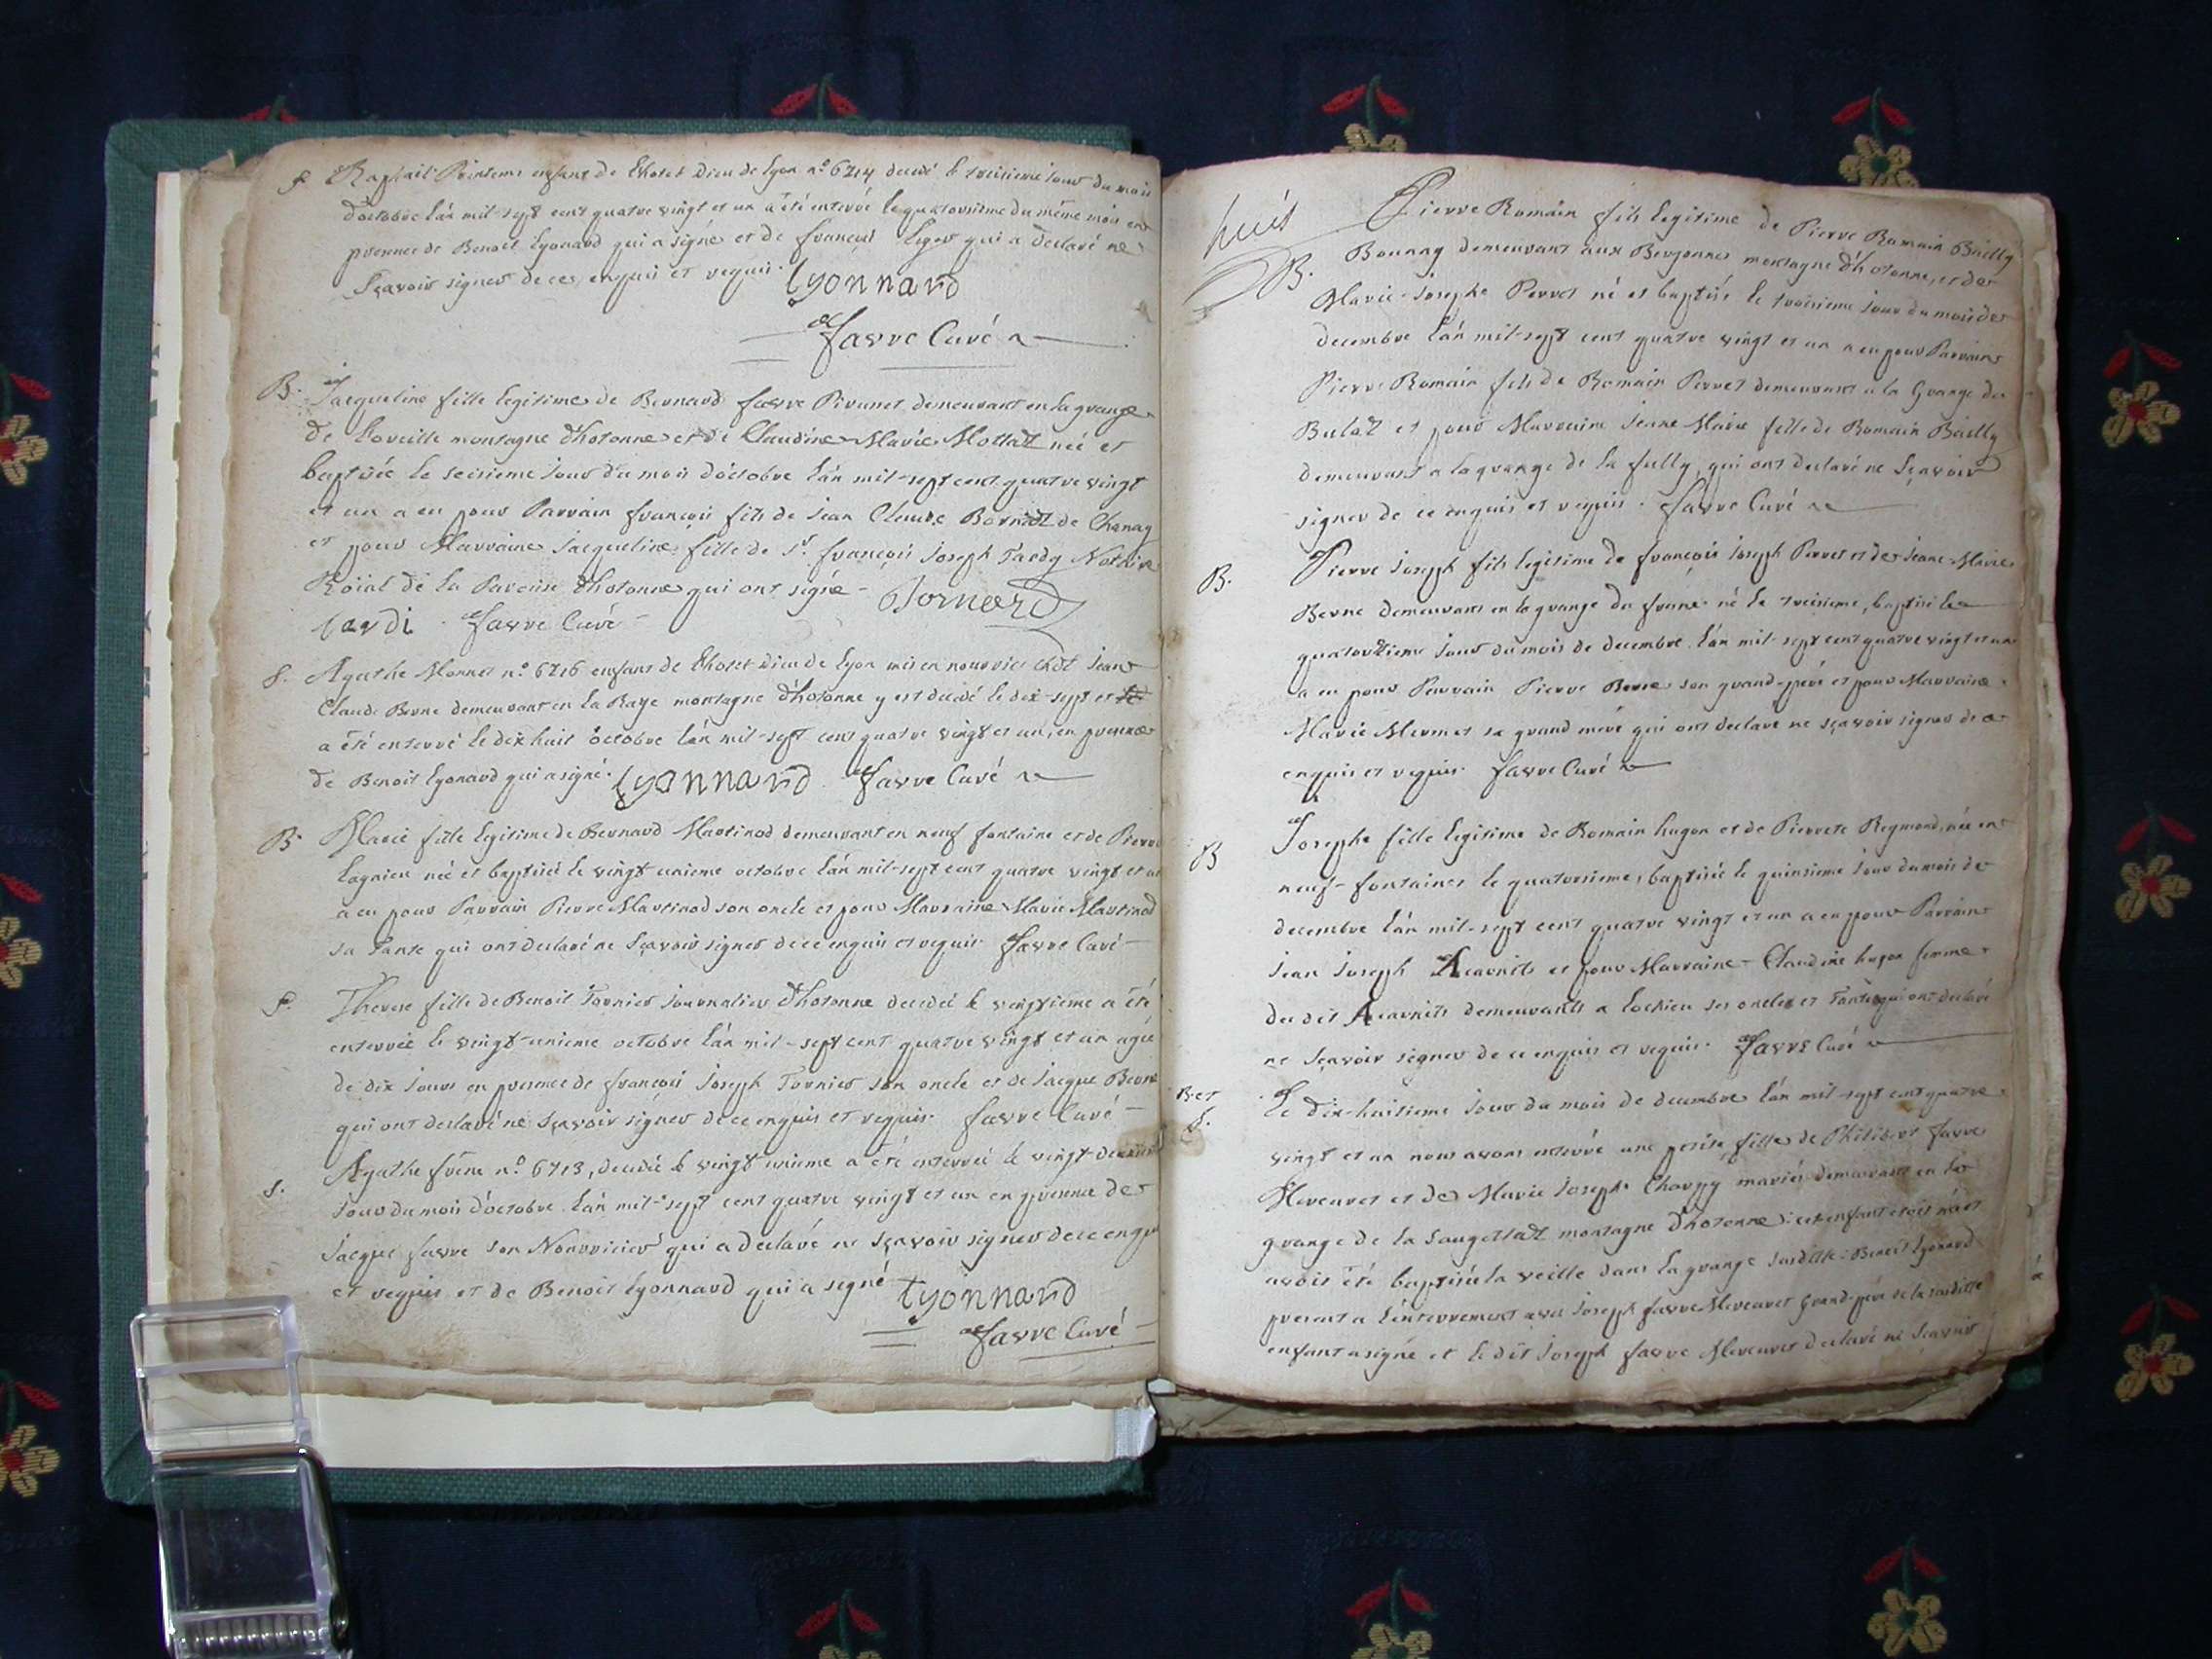 S. Raphaël Printems enfant de lhotel Dieu de Lyon n.o 6214 decedé le treisieme jour du mois
d'octobre l'án mil-sept cent quatre vingt et un a été enterré le quatorsieme du même mois en
presence de Benoit Lyonard qui a signé et de françois Leger qui a declaré ne
sçavoir signer de ce enquis et requis. Lyonnard
favre Curé
B. Jacqueline fille legitime de Bernard favre Pirunet demeurant en la grange
de Loreille montagne d'hotonne et de Claudine Marie Mottaz née et
baptisée le seisieme jour du mois d'octobre l'án mil-sept cent quatre vingt
et un a eu pour Parrain françois fils de Jean Claude Bornod de Chanay
et pour Marraine Jacqueline fille de Sr. françois Joseph Tardy Notaire
Roial de la Paroisse d'hotonne qui ont signé - Bornard
tardi . favre Curé -
S. Agathe Monnet n.o 6716 enfant de lhotel Dieu de Lyon mis en nourrice chéz Jean
Claude Berne demeurant en la Raye montagne d'hotonne y est decedé le dix-sept et
a été enterré le dix huit octobre l'án mil-sept cent quatre vingt et un, en presence
de Benoit Lyonard qui a signé. Lyonnard favre Curé
B. Marie fille legitime de Bernard Martinod demeurant en neuf fontaine et de Pierre
Lagnieu née et baptisée le vingt-unieme octobre l'án mil-sept cent quatre vingt et un
a eu pour Parrain Pierre Martinod son oncle et pour Marraine Marie Martinod
sa Tante qui ont declaré ne sçavoir signer de ce enquis et requis favre Curé -
S. Therese fille de Benoit Tornier journalier d'hotonne decedée le vingtieme a été
enterrée le vingt-unieme octobre l'án mil-sept cent quatre vingt et un agée
de dix jours en presence de françois Joseph Tornier son oncle et de Jacque Berne
qui ont declaré ne sçavoir signer de ce enquis et requis. favre Curé -
S. Agathe frene n.o 6713, decedée le vingt unieme a été enterrée le vingt-deuxieme
jour du mois d'octobre l'án mil-sept cent quatre vingt et un en presence de
Jacque favre son Nourricier qui a declaré ne sçavoir signer de ce enquis
et requis et de Benoit Lyonnard qui a signé Lyonnard
favre Curé
Pierre Romain fils legitime de Pierre Romain Bailly
B. Bounay demeurant aux Bergonnes montagne d'hotonne, et de
Marie-Josephe Perret né et baptisé le troisieme jour du mois de
decembre l'án mil-sept cent quatre vingt et un a eu pour Parrain
Pierre Romain fils de Romain Perret demeurant a la Grange du
Bulaz et pour Marraine Jeanne Marie fille de Romain Bailly
demeurant a la grange de la fully, qui ont declaré ne sçavoir
signer de ce enquis et requis . favre Curé
B. Pierre Joseph fils legitime de françois Joseph Perret et de Jeanne-Marie
Berne demeurant en la grange du frane né le treisieme, baptisé le
quatorzieme jour du mois de decembre l'án mil-sept cent quatre vingt et un
a eu pour Parrain Pierre Berne son grand-pére et pour Marraine
Marie Mermet sa grand mére qui ont declaré ne sçavoir signer de ce
enquis et requis. favre Curé
B Josephe fille legitime de Romain hugon et de Pierrete Reymond, née en
neuf-fontaines le quatorsieme, baptisée le quinsieme jour du mois de
decembre l'án mil-sept cent quatre vingt et un a eu pour Parrain
Jean Joseph et pour Marraine - Claudine hugon femme
du dit demeurants a Lochieu ses oncle et Tante qui ont declaré
ne sçavoir signer de ce enquis et requis. favre Curé
B. et S. Le dix-huitieme jour du mois de decembre l'án mil-sept cent quatre
vingt et un nous avons enterré une petite fille de Philibert favre
Mereuret et de Marie Josephe Charpy mariés demeurants en la
grange de la Saugettaz montagne d'hotonne: cet enfant etoit né et
avoit été baptisée la veille dans la grange susditte: Benoit Lyonard
present a l'enterrement avec Joseph favre Mereuret Grand-pére de la susditte
enfant a signé et le dit Joseph favre Mereuret declaré ne sçavoir